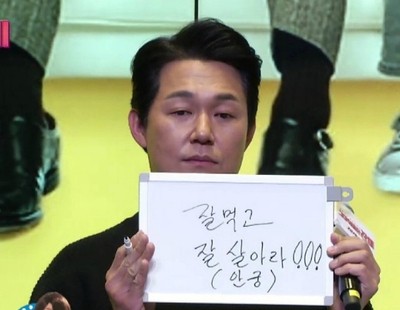 잘먹고
잘 살아라!!!
(안궁)